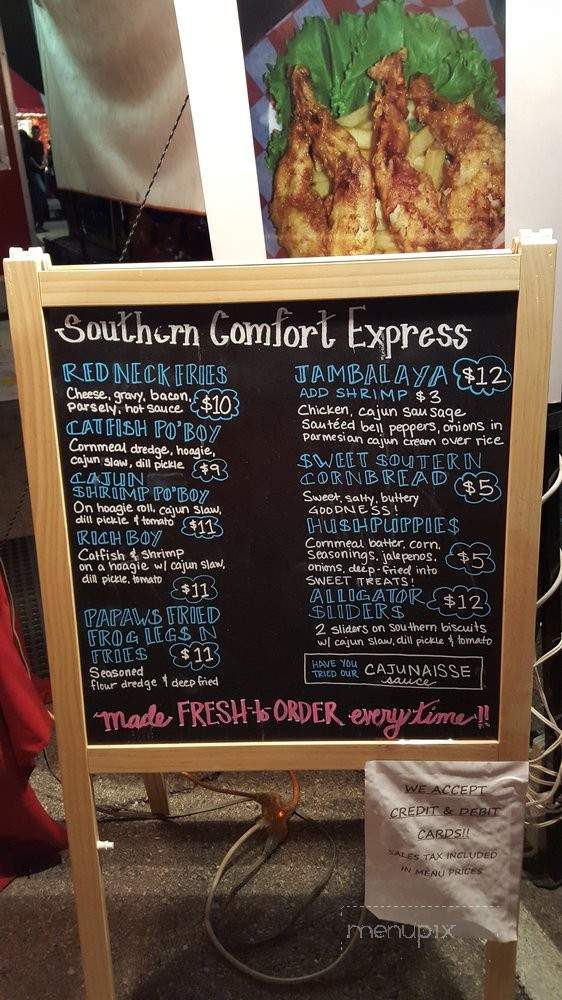 Southern Comfort Express
RED NECK FRIES
Cheese, gravy, bacon,
parsely, hot sauce $10
CATFISH PO'BOY
Cornmeal dredge, hoagie,
cajun slaw, dill pickle $9
CAJUN
SHRIMP PO'BOY
On hoagie roll, cajun slaw,
dill pickle & tomato $11
RICH BOY
Catfish & shrimp
on a hoagie w/ cajun slaw,
dill pickle, tomato
$11
PAPAWS FRIED
FROG LEGS N
FRIES $11
Seasoned
flour dredge & deep fried
JAMBALAYA $12
ADD SHRIMP $3
Chicken, cajun sausage
Sautéed bell peppers, onions in
parmesian cajun cream over rice
SWEET SOUTERN
CORNBREAD $5
Sweet, salty, buttery
GOODNESS!
HUSHPUPPIES
Cornmeal batter, corn,
Seasonings, jalepenos, $5
onions, deep-fried into
SWEET TREATS!
ALLIGATOR $12
SLIDERS
2 sliders on southern biscuits
w/ cajun slaw, dill pickle & tomato
HAVE YOU
TRIED OUR CAJUNAISSE
sauce
made FRESH-to ORDER everytime!!
WE ACCEPT
CREDIT & DEBIT
CARDS!!
SALES TAX INCLUDED
IN MENU PRICES
menupix